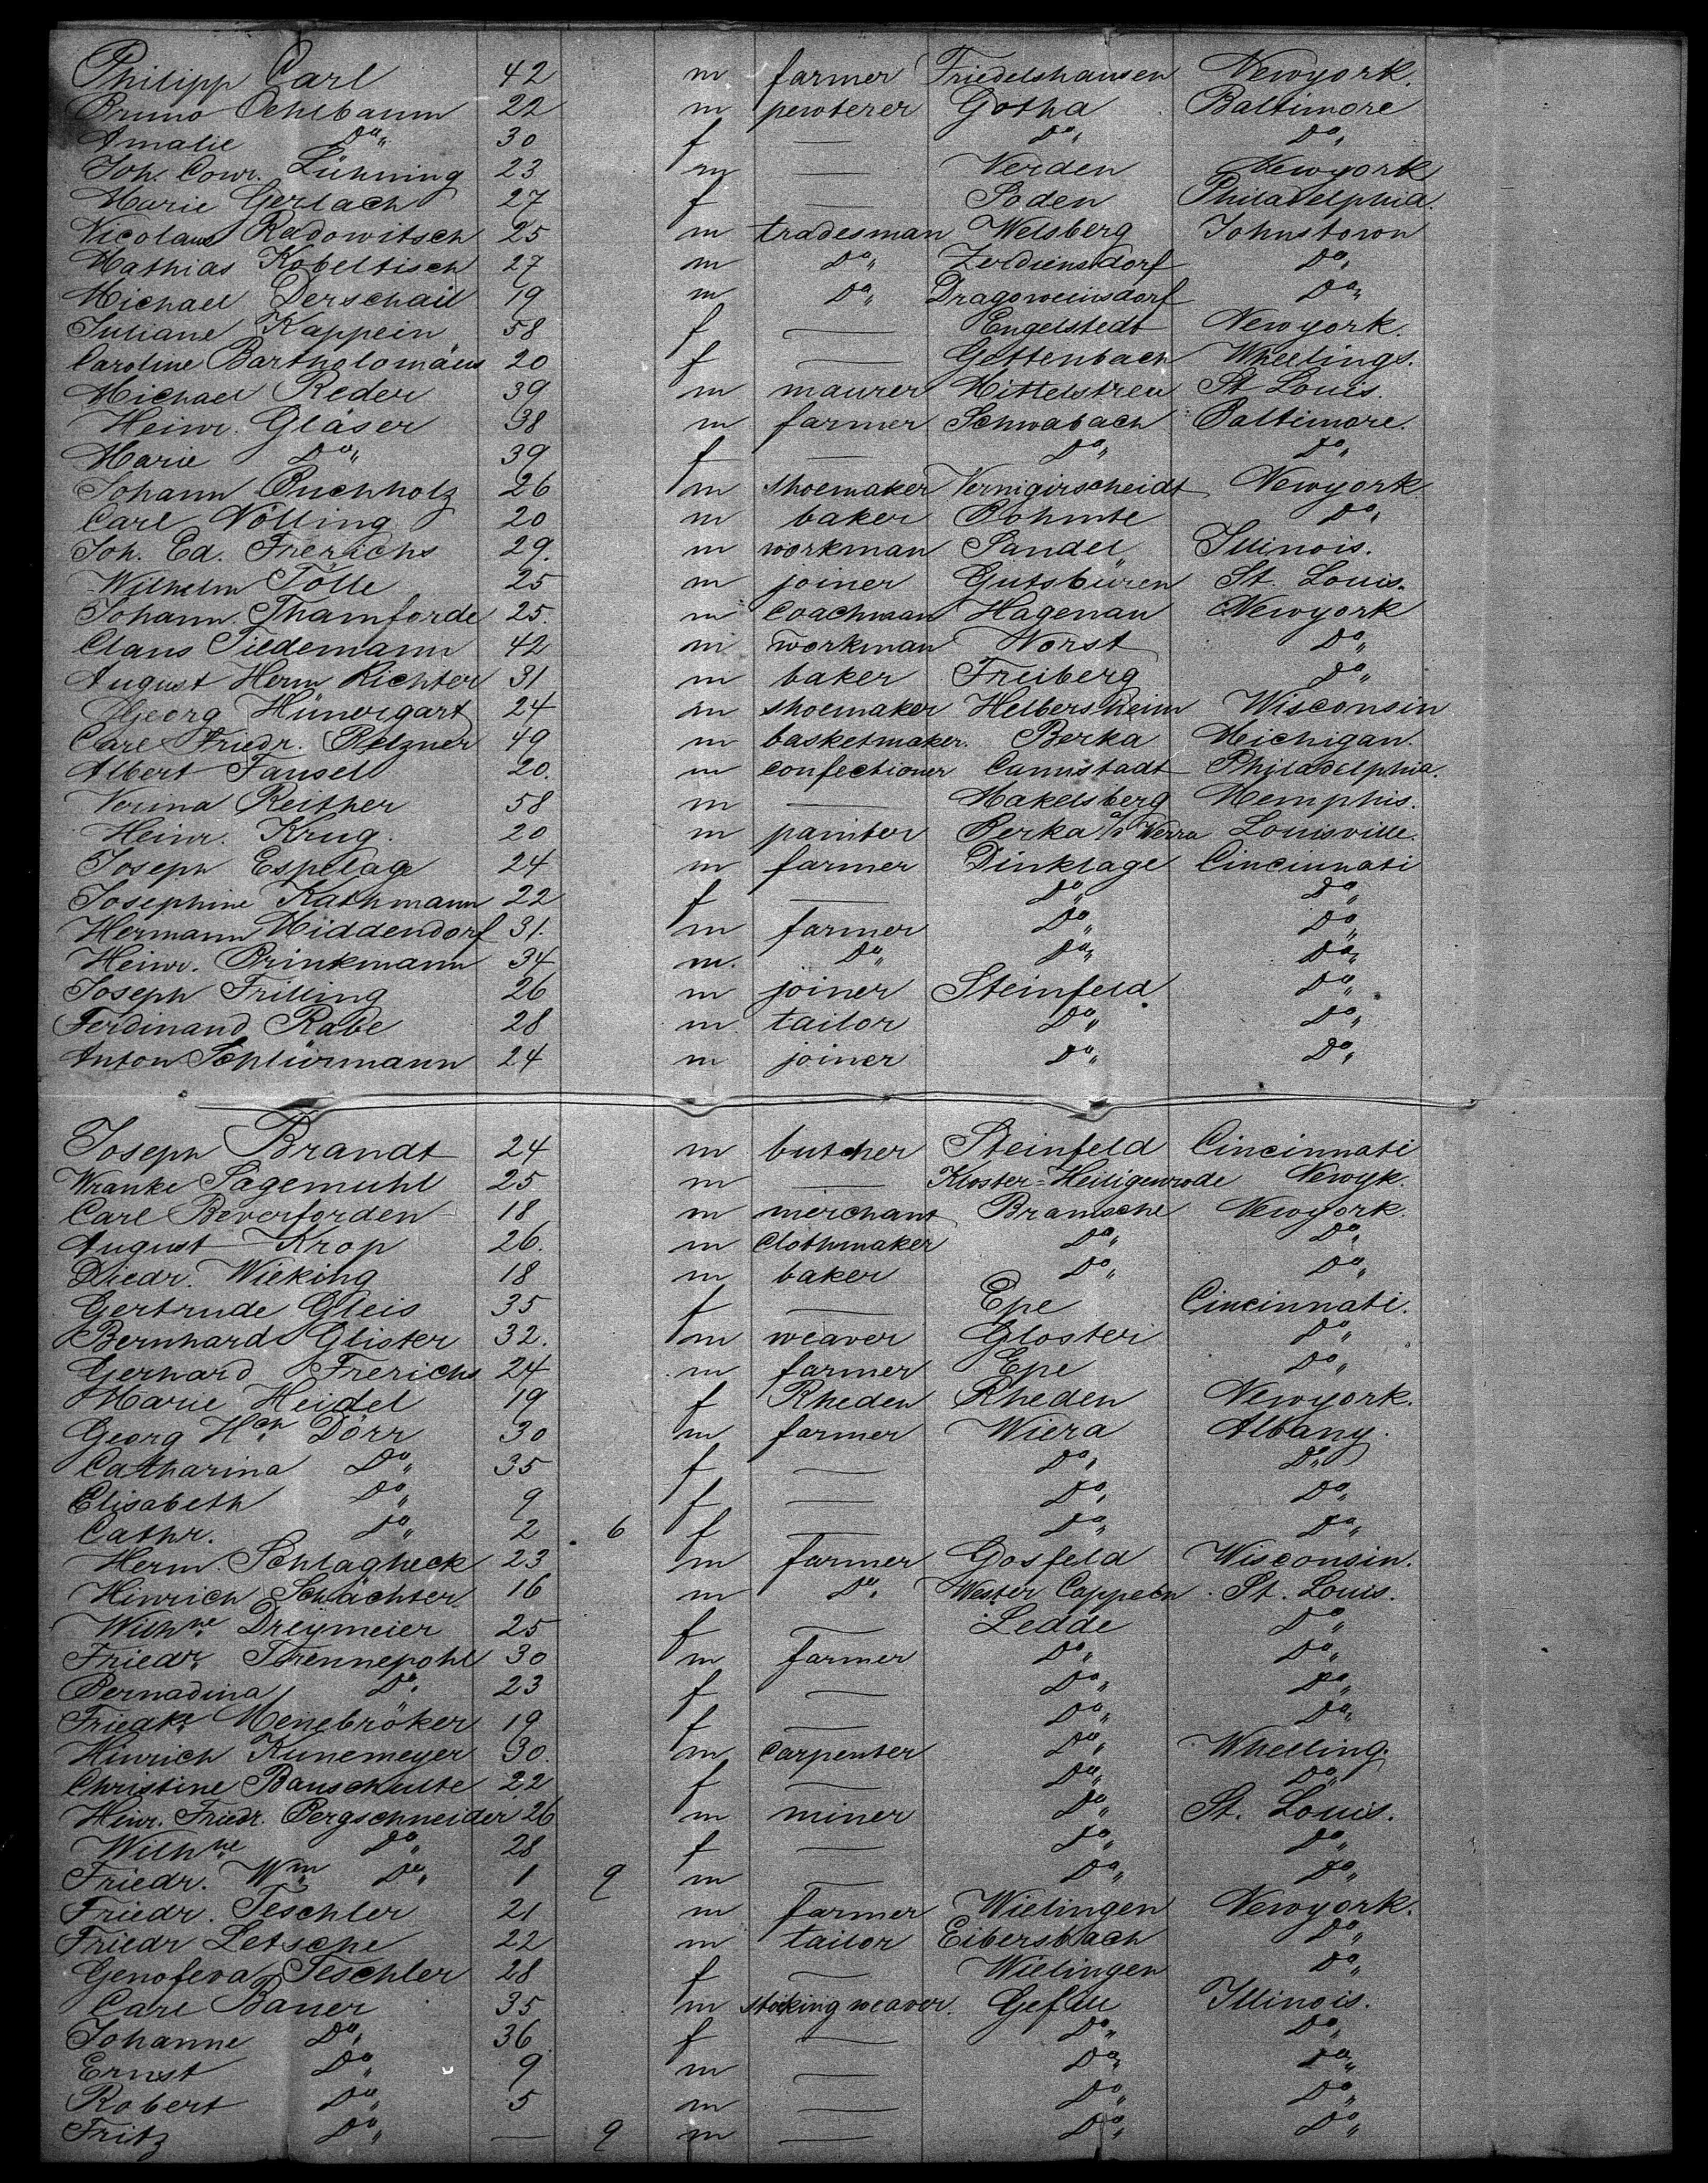 Philipp Carl 42 m farmer Friedelshausen Newyork.
Bruno Oehlbaum 22 m pewterer Gotha Baltimore
Amalie Do 30 f — Do Do
Joh. Conr. Lühning 23 m — Verden Newyork
Marie Gerlach 27 f — Soden Philadelphia.
Nicolaus Radowitsch 25 m tradesman Welsberg Johnstown
Mathias Kobeltisch 27 m Do Zerdiensdorf Do
Michael Derschail 19 m Do Dragoweinsdorf Do
Juliane Kappein 58 f — Engelstedt Newyork.
Caroline Bartholomäus 20 f — Gettenbach Wheelings.
Michael Reder 39 m maurer Mittelstreu St Louis.
Heinr. Gläser 38 m farmer Schwabach Baltimore.
Marie Do 39 f — Do Do
Johann Buchholz 26 m shoemaker Vernigirscheidt Newyork
Carl Nölling 20 m baker Bohmte Do
Joh. Ed. Frerichs 29. m workman Sandel Illinois.
Wilhelm Tölle 25 m joiner Gutsbüren St. Louis.
Johann Thamforde 25. m coachman Hagenau Newyork
Claus Tiedemann 42 m workman Worst Do
August Herm Richter 31 m baker Freiberg Do
Georg Hünergart 24 m shoemaker Helbersheim Wisconsin
Carl Friedr. Pelzner 49 m basketmaker. Berka Michigan.
Albert Fausel 20. m confectioner Cannstadt Philadelphia.
Verina Reither 58 m — Makelsberg Memphis.
Heinr. Krug. 20 m painter Berka a/d Werra Louisville.
Joseph Espelage 24 m farmer Dinklage Cincinnati
Josephine Kathmann 22 f — Do Do
Hermann Middendorf 31. m farmer Do Do
Heinr. Brinkmann 34 m. Do Do Do
Joseph Frilling 26 m joiner Steinfeld Do
Ferdinand Rabe 28 m tailor Do Do
Anton Schlürmann 24 m joiner Do Do
Joseph Brandt 24 m butcher Steinfeld Cincinnati
Wranke Sagemuhl 25 m — Kloster=Heiligenrode Newyk.
Carl Beverforden 18 m merchant Bramsche Newyork.
August Krop 26. m clothmaker Do Do
Diedr. Wieking 18 m baker Do Do
Gertrude Gleis 35 f — Epe Cincinnati.
Bernhard Glister 32. m weaver Glosteri Do
Gerhard Frerichs 24 m farmer Epe Do
Marie Heidel 19 f Rheden Rheden Newyork.
Georg Hch Dörr 30 m farmer Wiera Albany.
Catharina Do 35 f — Do Do
Elisabeth Do 9 f — Do Do
Cathr. Do 2 6 f — Do Do
Herm. Schlagheck 23 m farmer Gosfeld Wisconsin.
Hinrich Schächter 16 m Do Wester Cappeln St. Louis.
Wilhne Dreymeier 25 f — Ledde Do
Friedr. Thrennepohl 30 m farmer Do Do
Bernadina Do 23 f — Do Do
Friedke Menebröker 19 f — Do Do
Hinrich Kunemeyer 30. m carpenter Do Whelling.
Christine Bauschulte 22 f — Do Do
Heinr. Friedr. Bergschneider 26 m miner Do St. Louis.
Wilhne Do 28 f — Do Do
Friedr. Wm Do 1 9 m — Do Do
Friedr. Teschler 21 m farmer Wielingen Newyork.
Friedr Letsche 22 m tailor Eibersbach Do
Genofeva Teschler 28 f — Wielingen Do
Carl Bauer 35 m stocking weaver. Gefell Illinois.
Johanne Do 36 f — Do Do
Ernst Do 9 m — Do Do
Robert Do 5 m — Do Do
Fritz Do — 9 m — Do Do